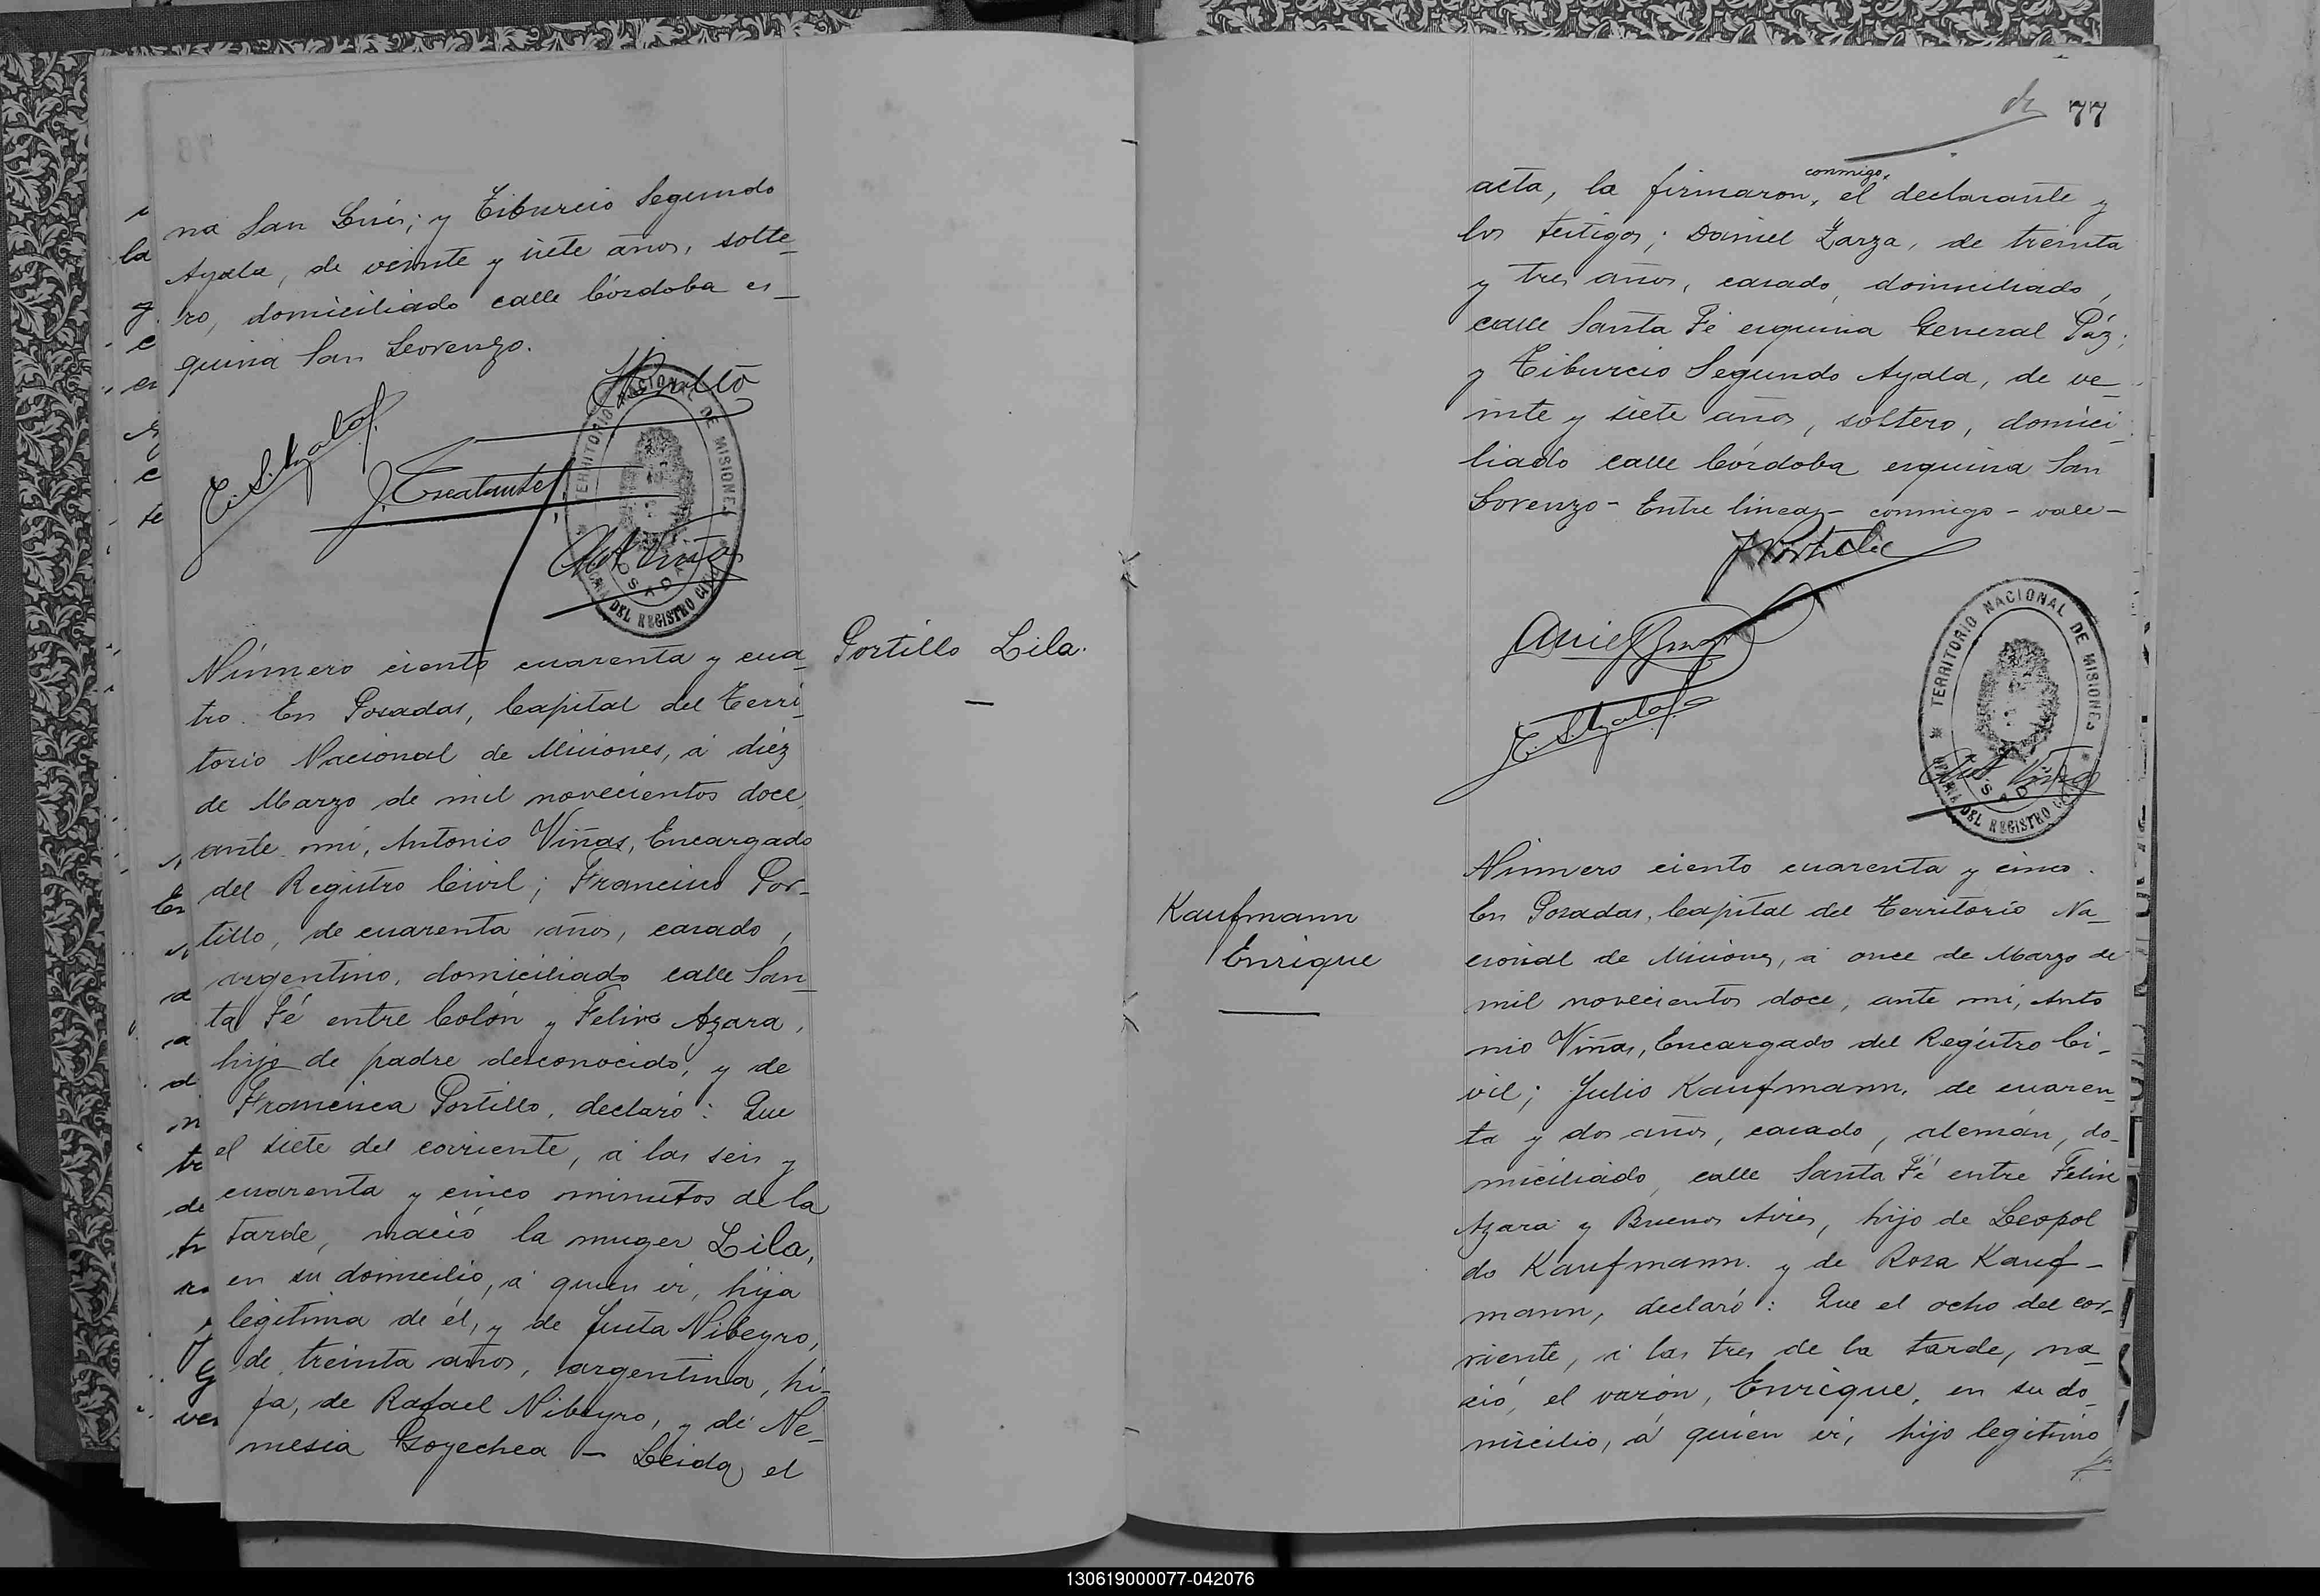 na San Luis; y Tiburcio Segundo
Ayala, de veinte y siete años, solte_
ro, domiciliado calle Córdoba es_
quina San Lorenzo.
T. S. Ayala
J. Escalante
TERRITORIO NACIONAL DE MISIONES
POSADAS
DEL REGISTRO CIVIL
Ant Viñas
Portillo Lila.
Número ciento cuarenta y cua_
tro. En Posadas, Capital del Terri_
torio Nacional de Misiones, á diéz
de Marzo de mil novecientos doce,
ante mí, Antonio Viñas, Encargado
del Registro Civil; Francisco Por_
tillo, de cuarenta años, casado,
argentino, domiciliado calle San_
ta Fé entre Colón y Felix Azara,
hijo de padre desconocido, y de
Francisca Portillo, declaró: Que
el siete del corriente, á las seis y
cuarenta y cinco minutos de la
tarde, nació la muger Lila,
en su domicilio, á quien ví, hija
legítima de él, y de Justa Nibeyro,
de treinta años, argentina, hi_
ja, de Rafael Nibeyro, y de Ne_
mesia Goyechea - Leida el
77
conmigo,
acta, la firmaron, el declarante y
los testigos; Daniel Zarza, de treinta
y tres años, casado, domiciliado,
calle Santa Fé esquina General Páz;
y Tiburcio Segundo Ayala, de ve_
inte y siete años, soltero, domici_
liado calle Córdoba esquina San
Lorenzo - Entre lineas - conmigo - vale -
F Portillo
T. S. Ayala
TERRITORIO NACIONAL DE MISIONES
POSADAS
DEL REGISTRO CIVIL
Ant Viñas
Kaufmann
Enrique
Número ciento cuarenta y cinco.
En Posadas, Capital del Territorio Na_
cional de Misiones, á once de Marzo de
mil novecientos doce, ante mí, Anto
nio Viñas, Encargado del Registro Ci_
vil; Julio Kaufmann, de cuaren_
ta y dos años, casado, alemán, do_
miciliado, calle Santa Fé entre Felix
Azara y Buenos Aires, hijo de Leopol
do Kaufmann y de Rosa Kauf_
mann, declaró: Que el ocho del cor_
riente, á las tres de la tarde, na_
ció, el varón, Enrique, en su do_
micilio, á quién ví, hijo legítimo
130619000077-042076